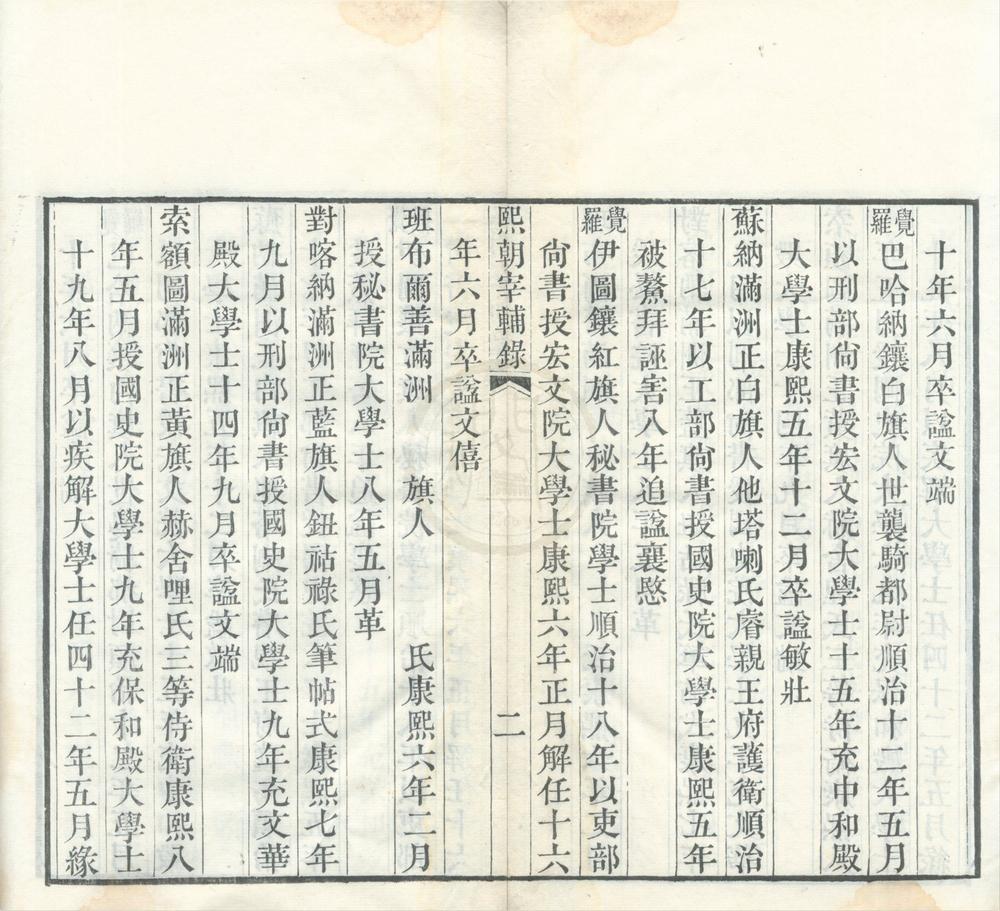 十年六月卒諡文端
覺羅巴哈納鑲白旗人世襲騎都尉順治十二年五月
以刑部尙書授宏文院大學士十五年充中和殿
大學士康熙五年十二月卒諡敏壯
蘇納滿洲正白旗人他塔喇氏睿親王府護衛順治
十七年以工部尙書授國史院大學士康熙五年
被鰲拜誣害八年追諡襄愍
覺羅伊圖鑲紅旗人秘書院學士順治十八年以吏部
尙書授宏文院大學士康熙六年正月解任十六
熙朝宰輔錄 二
年六月卒諡文僖
班布爾善滿洲 旗人 氏康熙六年二月
授秘書院大學士八年五月革
對喀納滿洲正藍旗人鈕祜祿氏筆帖式康熙七年
九月以刑部尙書授國史院大學士九年充文華
殿大學士十四年九月卒諡文端
索額圖滿洲正黃旗人赫舍哩氏三等侍衛康熙八
年五月授國史院大學士九年充保和殿大學士
十九年八月以疾解大學士任四十二年五月緣